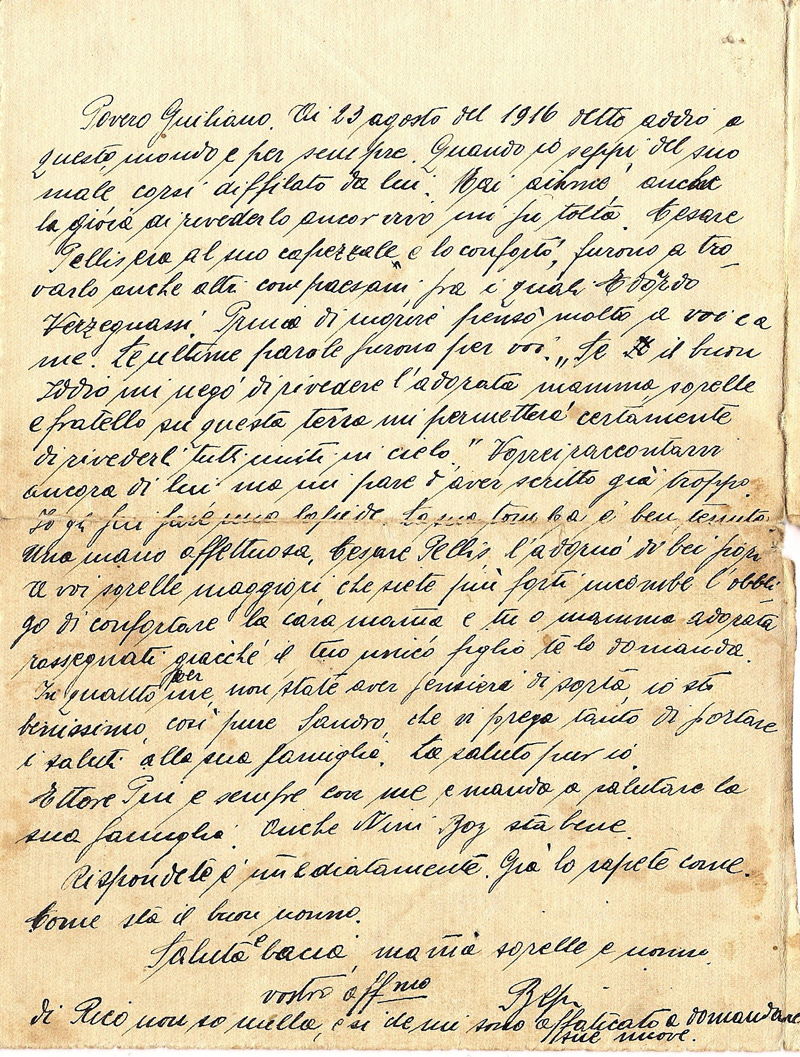 Povero Giuliano. Ai 23 agosto del 1916 dette addio a
questo mondo e per sempre. Quando io seppi del suo
male corsi diffilato da lui. Mai aihmè anche
la gioia di rivederlo ancor vivo mi fu tolta. Cesare
Pellis era al suo capezzale e lo confortò, furono a tro-
varlo anche altri compaesani fra i quali Edordo
Verzegnassi. Prima di morire pensò molto a voi e a
me. Le ultime parole furono per voi: „Se il buon
Iddio mi negò di rivedere l'adorata mamma sorelle
e fratello su questa terra mi permetterà certamente
di rivederli tutti uniti in cielo." Vorrei raccontarvi
ancora di lui ma mi pare d'aver scritto già troppo.
Io gli fui fare una lapide. La sua tomba è ben tenuta.
Una mano affettuosa, Cesare Pellis, l'adornò di bei fiori
A voi sorelle maggiori che siete più forti incombe l'obbli-
go di confortare la cara mama e tu o mamma adorata
rassegnati giacchè il tuo unico figlio te lo domanda.
In quanto per me, non state aver pensieri di sorta, io stò
benissimo, così pure Sandro, che vi prega tanto di portare
i saluti alla sua famiglia. La saluto pur io.
Ettore Pin e sempre con me e manda a salutare la
sua famiglia. Anche Nini Boz sta bene.
Rispondete immediatamente. Già lo sapete come.
Come stà il buon nonno.
Saluta e bacia mama sorelle e nonno
vostro affmo Bepi
di Rico non so nulla, e si che mi sono affaticato a domandare
sue nuove.